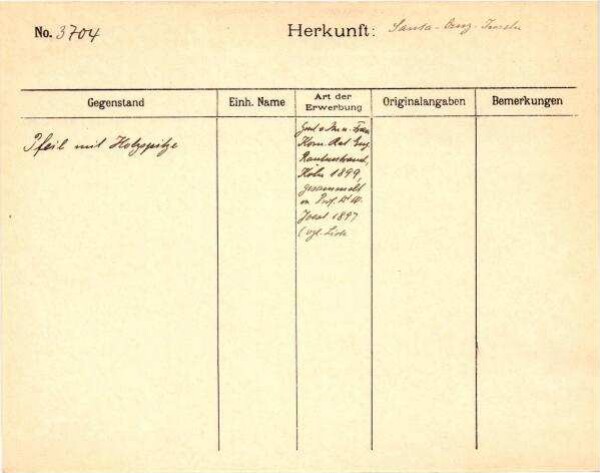 No. 3704
Herkunft: Santa-Cruz-Inseln
Gegenstand
Einh. Name
Art der
Erwerbung
Originalangaben
Bemerkungen
Pfeil mit Holzspitze
Frau
Kom. Rat Eug.
Rautenstrauch,
Köln 1899,
gesammelt
Prof. Dr. W.
Joest 1897
(vgl. Liste